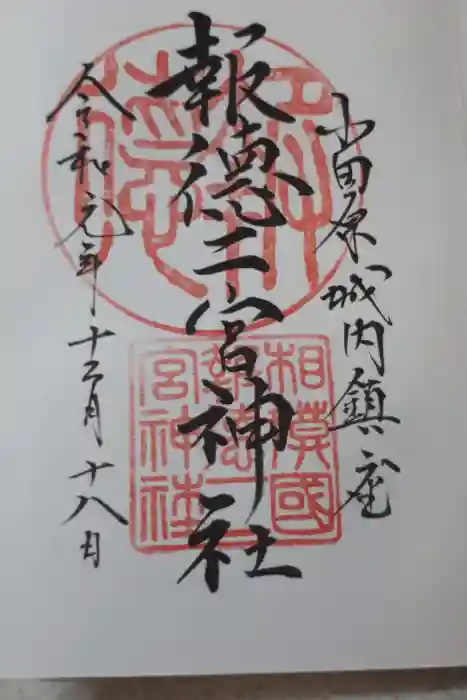 小田原城内鎮座
報徳二宮神社
令和元年十二月十八日
相模國
報徳二
宮神社